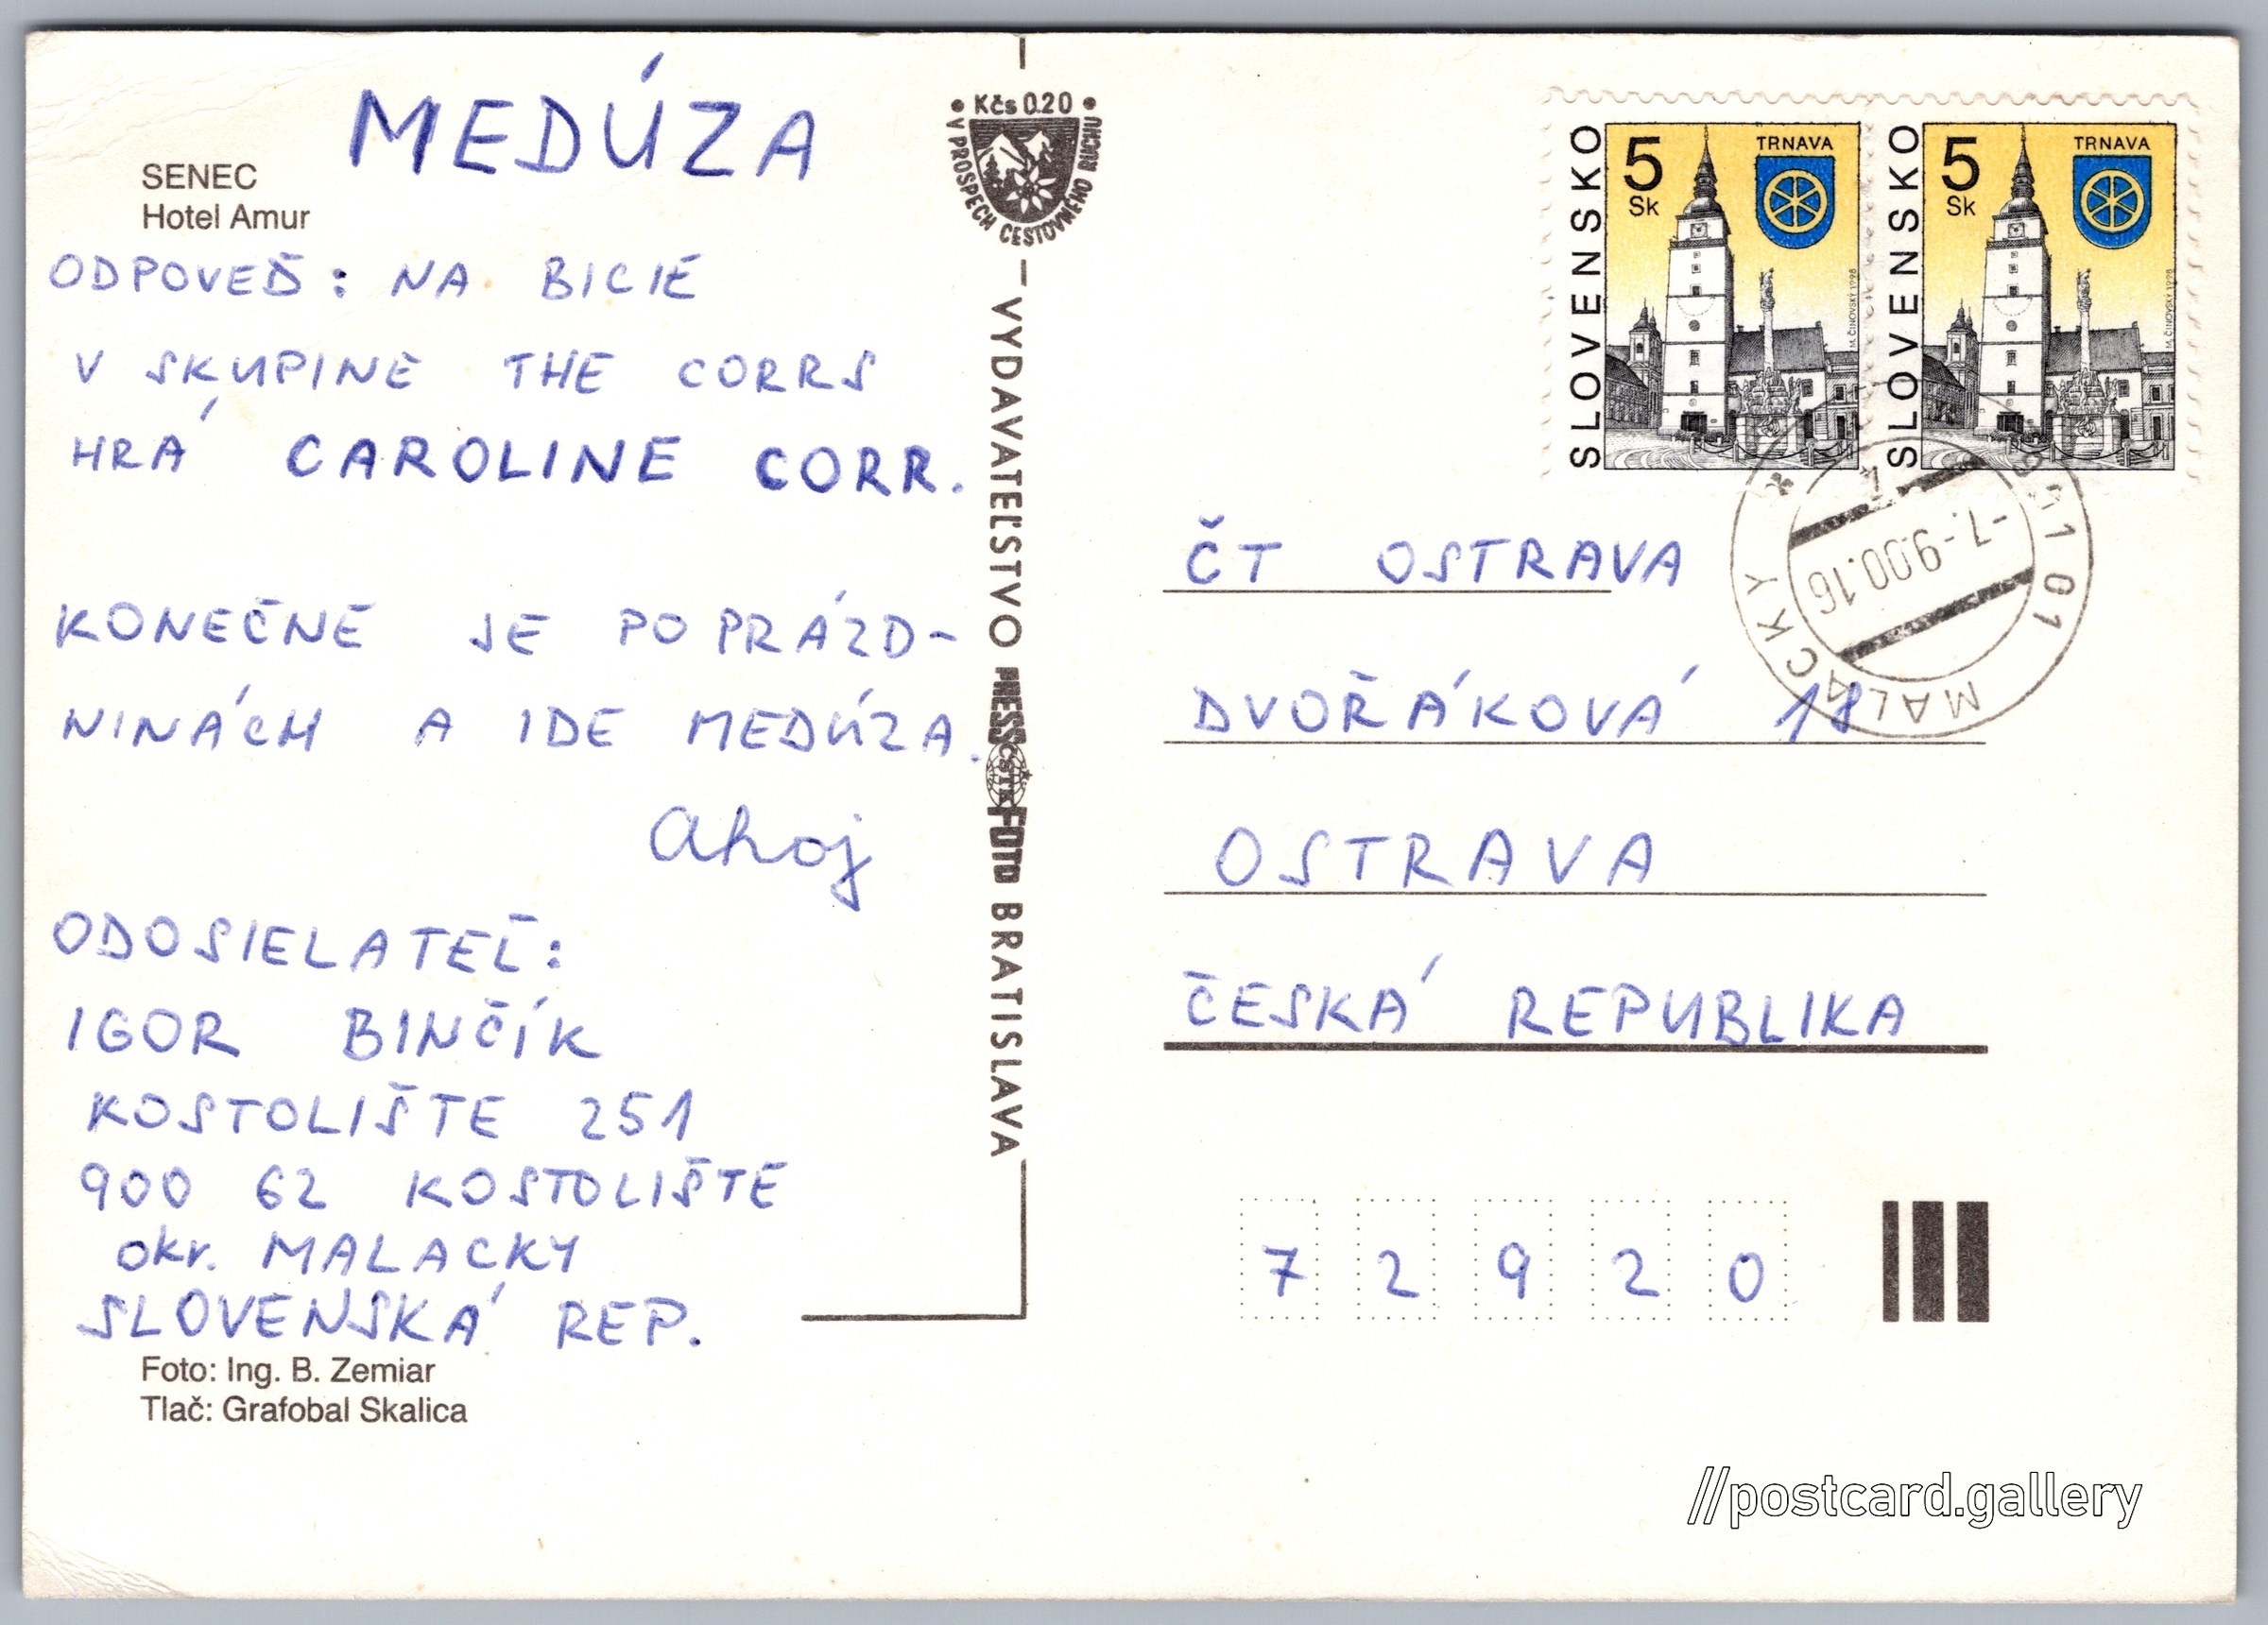 MEDÚZA
SENEC
Hotel Amur
ODPOVEĎ: NA BICIE
V SKUPINE THE CORRS
HRÁ CAROLINE CORR.
KONEČNE SE PO PRÁZD-
NINÁCH A IDE MEDÚZA.
Ahoj
ODOSIELATEĽ:
IGOR BINČÍK
KOSTOLIŠTE 251
900 62 KOSTOLIŠTE
okr. MALACKY
SLOVENSKÁ REP.
Foto: Ing. B. Zemiar
Tlač: Grafobal Skalica
Kčs 0.20
V PROSPECH CESTOVNÉHO RUCHU
VYDAVATEĽSTVO PRESSFOTO BRATISLAVA
ČSTK
SLOVENSKO
5
Sk
TRNAVA
M. ČINOVSKÝ 1998
SLOVENSKO
5
Sk
TRNAVA
M. ČINOVSKÝ 1998
901 01
MALACKY
-7.-9.00.16
1
ČT OSTRAVA
DVOŘÁKOVÁ 18
OSTRAVA
ČESKÁ REPUBLIKA
7 2 9 2 0
//postcard.gallery